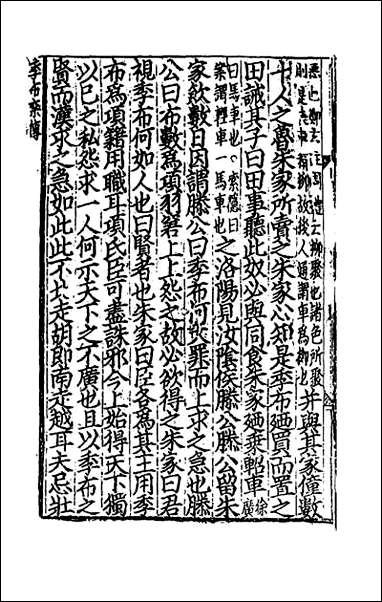 也鄭玄注周禮云柳聚也諸色所聚
則是喪車稱柳故後人通謂車為柳也
并與其家僮數
十人之魯朱家所賣之朱家心知是季布廼買而置之
田誡其子曰田事聽此奴必與同食朱家廼乘軺車徐廣
曰馬車也索隱曰
案謂輕車一馬車也
之洛陽見汝陰侯滕公滕公留朱
家飲數日因謂滕公曰季布何罪而上求之急也滕
公曰布數為項羽窘上上怨之故必欲得之朱家曰君
視季布何如人也曰賢者也朱家曰臣各為其主用季
布為項籍用職耳項氏臣可盡誅邪今上始得天下獨
以己之私怨求一人何示天下之不廣也且以季布之
賢而漢求之急如此此不北走胡即南走越耳夫忌壯
季布欒傳